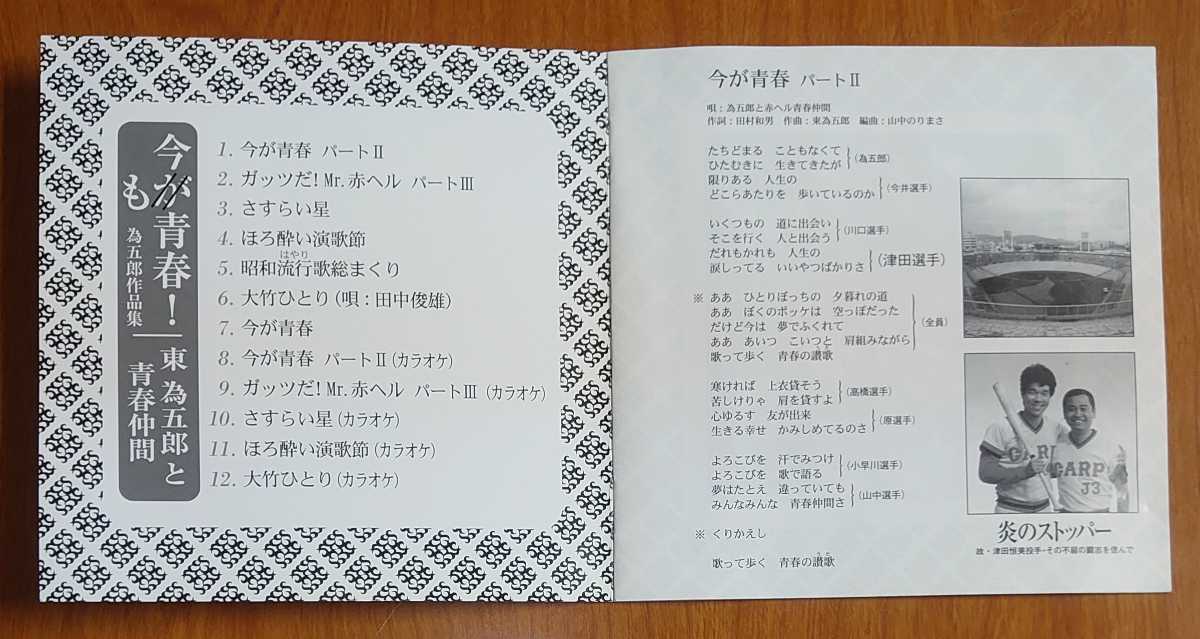 今が青春!
も
為五郎作品集
東 為五郎と
青春仲間
1. 今が青春 パートⅡ
2. ガッツだ! Mr.赤ヘル パートⅢ
3. さすらい星
4. ほろ酔い演歌節
はやり
5. 昭和流行歌総まくり
6. 大竹ひとり(唄:田中俊雄)
7. 今が青春
8. 今が青春 パートⅡ(カラオケ)
9. ガッツだ! Mr.赤ヘル パートⅢ(カラオケ)
10. さすらい星(カラオケ)
11. ほろ酔い演歌節(カラオケ)
12. 大竹ひとり(カラオケ)
今が青春 パートⅡ
唄:為五郎と赤ヘル青春仲間
作詞:田村和男 作曲:東為五郎 編曲:山中のりまさ
たちどまる こともなくて
ひたむきに 生きてきたが
(為五郎)
限りある 人生の
どこらあたりを 歩いているのか
(今井選手)
いくつもの 道に出会い
そこを行く 人と出会う
(川口選手)
だれもかれも 人生の
涙しってる いいやつばかりさ
(津田選手)
※ ああ ひとりぼっちの 夕暮れの道
ああ ぼくのポッケは 空っぽだった
だけど今は 夢でふくれて
ああ あいつ こいつと 肩組みながら
うた
歌って歩く 青春の讃歌
(全員)
寒ければ 上衣貸そう
苦しけりゃ 肩を貸すよ
(高橋選手)
心ゆるす 友が出来
生きる幸せ かみしめてるのさ
(原選手)
よろこびを 汗でみつけ
よろこびを 歌で語る
(小早川選手)
夢はたとえ 違っていても
みんなみんな 青春仲間さ
(山中選手)
※ くりかえし
うた
歌って歩く 青春の讃歌
CARP
CARP
J3
炎のストッパー
故・津田恒美投手・その不屈の闘志を偲んで